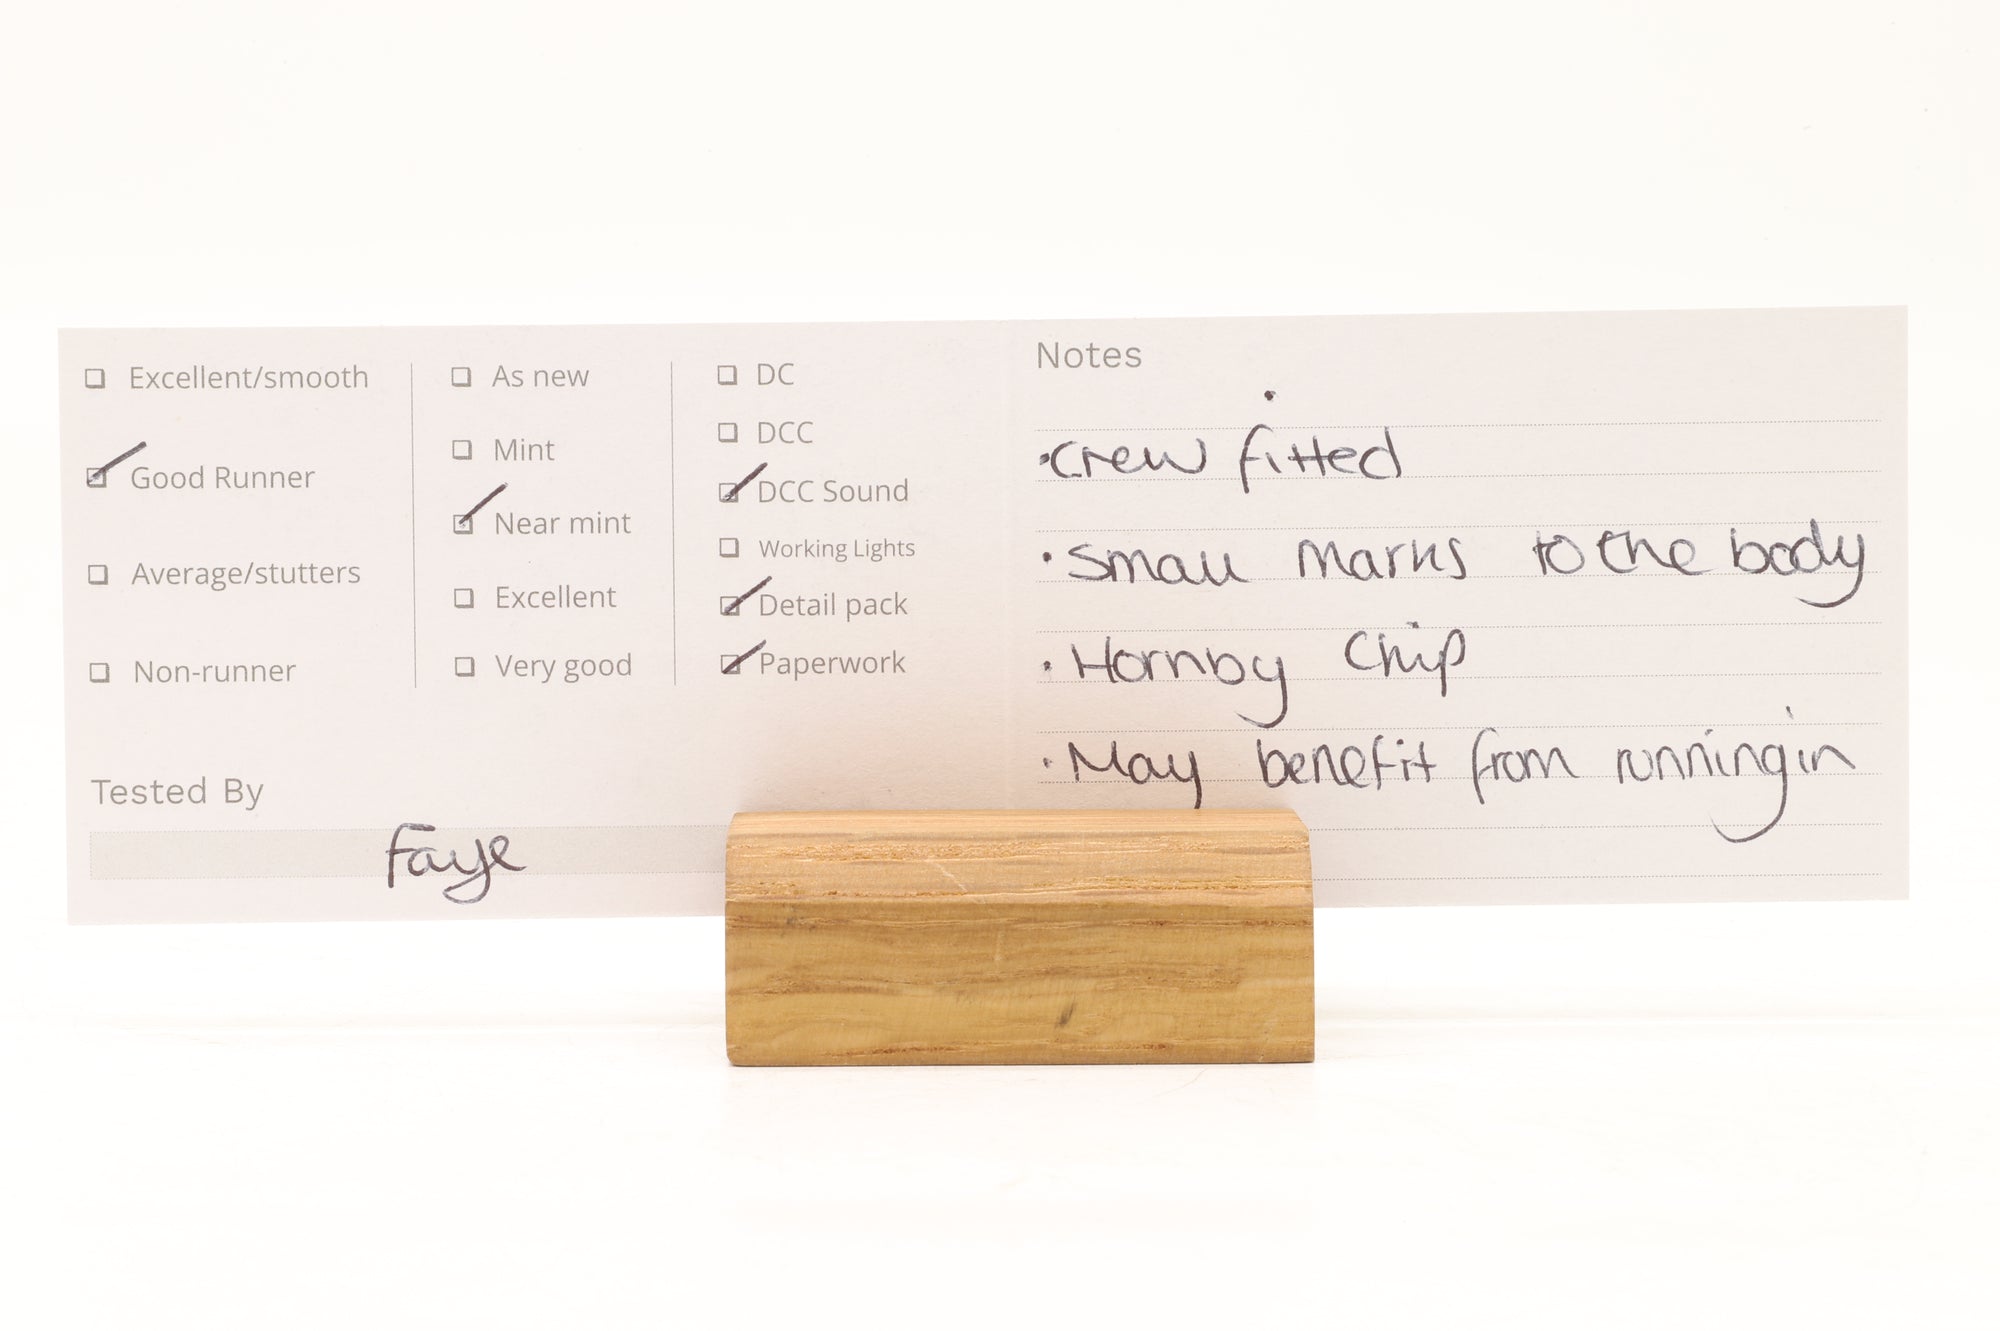 Excellent/smooth
Good Runner
Average/stutters
Non-runner
As new
Mint
Near mint
Excellent
Very good
DC
DCC
DCC Sound
Working Lights
Detail pack
Paperwork
Tested By
Faye
Notes
·Crew fitted
·Small Marks to the body
·Hornby Chip
·May benefit from running in